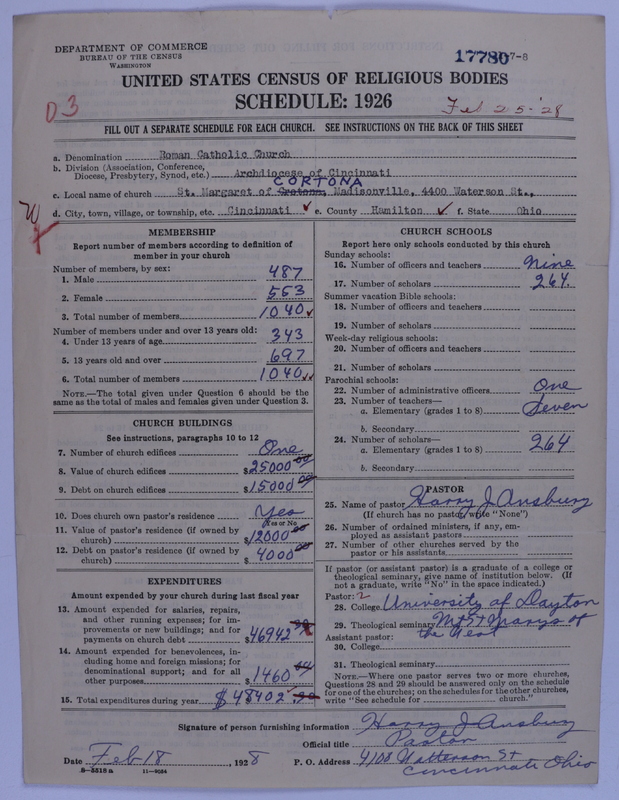 DEPARTMENT OF COMMERCE
BUREAU OF THE CENSUS
WASHINGTON
17780 7-8
UNITED STATES CENSUS OF RELIGIOUS BODIES
SCHEDULE: 1926
D3
Feb 25-'28
FILL OUT A SEPARATE SCHEDULE FOR EACH CHURCH. SEE INSTRUCTIONS ON THE BACK OF THIS SHEET
a. Denomination Roman Catholic Church
b. Division (Association, Conference, Diocese, Presbytery, Synod, etc.) Archdiocese of Cincinnati
CORTONA
c. Local name of church St. Margaret of Madisonville, 4400 Waterson St.,
d. City, town, village, or township, etc. Cincinnati e. County Hamilton f. State Ohio
MEMBERSHIP
Report number of members according to definition of member in your church
Number of members, by sex:
1. Male 487
2. Female 553
3. Total number of members 1040
Number of members under and over 13 years old:
4. Under 13 years of age 343
5. 13 years old and over 697
6. Total number of members 1040
NOTE.—The total given under Question 6 should be the same as the total of males and females given under Question 3.
CHURCH BUILDINGS
See instructions, paragraphs 10 to 12
7. Number of church edifices One
8. Value of church edifices $25000 00
9. Debt on church edifices $15000 00
10. Does church own pastor's residence? Yes
Yes or No
11. Value of pastor's residence (if owned by church) $12000 00
12. Debt on pastor's residence (if owned by church) $4000 00
EXPENDITURES
Amount expended by your church during last fiscal year
13. Amount expended for salaries, repairs, and other running expenses; for improvements or new buildings; and for payments on church debt $46942
14. Amount expended for benevolences, including home and foreign missions; for denominational support; and for all other purposes $1460
15. Total expenditures during year $48402
CHURCH SCHOOLS
Report here only schools conducted by this church
Sunday schools:
16. Number of officers and teachers Nine
17. Number of scholars 264.
Summer vacation Bible schools:
18. Number of officers and teachers
19. Number of scholars
Week-day religious schools:
20. Number of officers and teachers
21. Number of scholars
Parochial schools:
22. Number of administrative officers One
23. Number of teachers—
a. Elementary (grades 1 to 8) Seven
b. Secondary
24. Number of scholars—
a. Elementary (grades 1 to 8) 264
b. Secondary
PASTOR
25. Name of pastor Harry J Ansbury
(If church has no pastor, write "None")
26. Number of ordained ministers, if any, employed as assistant pastors
27. Number of other churches served by the pastor or his assistants
If pastor (or assistant pastor) is a graduate of a college or theological seminary, give name of institution below. (If not a graduate, write "No" in the space indicated.)
Pastor: 2
28. College University of Dayton
29. Theological seminary Mt St Marys of the West
Assistant pastor:
30. College
31. Theological seminary
NOTE.—Where one pastor serves two or more churches, Questions 28 and 29 should be answered only on the schedule for one of the churches; on the schedules for the other churches, write "See schedule for church."
Signature of person furnishing information Harry J Ansbury
Official title Pastor
Date Feb 18, 1928 P. O. Address 4108 Watterson St
Cincinnati Ohio
8-5518a 11-9034